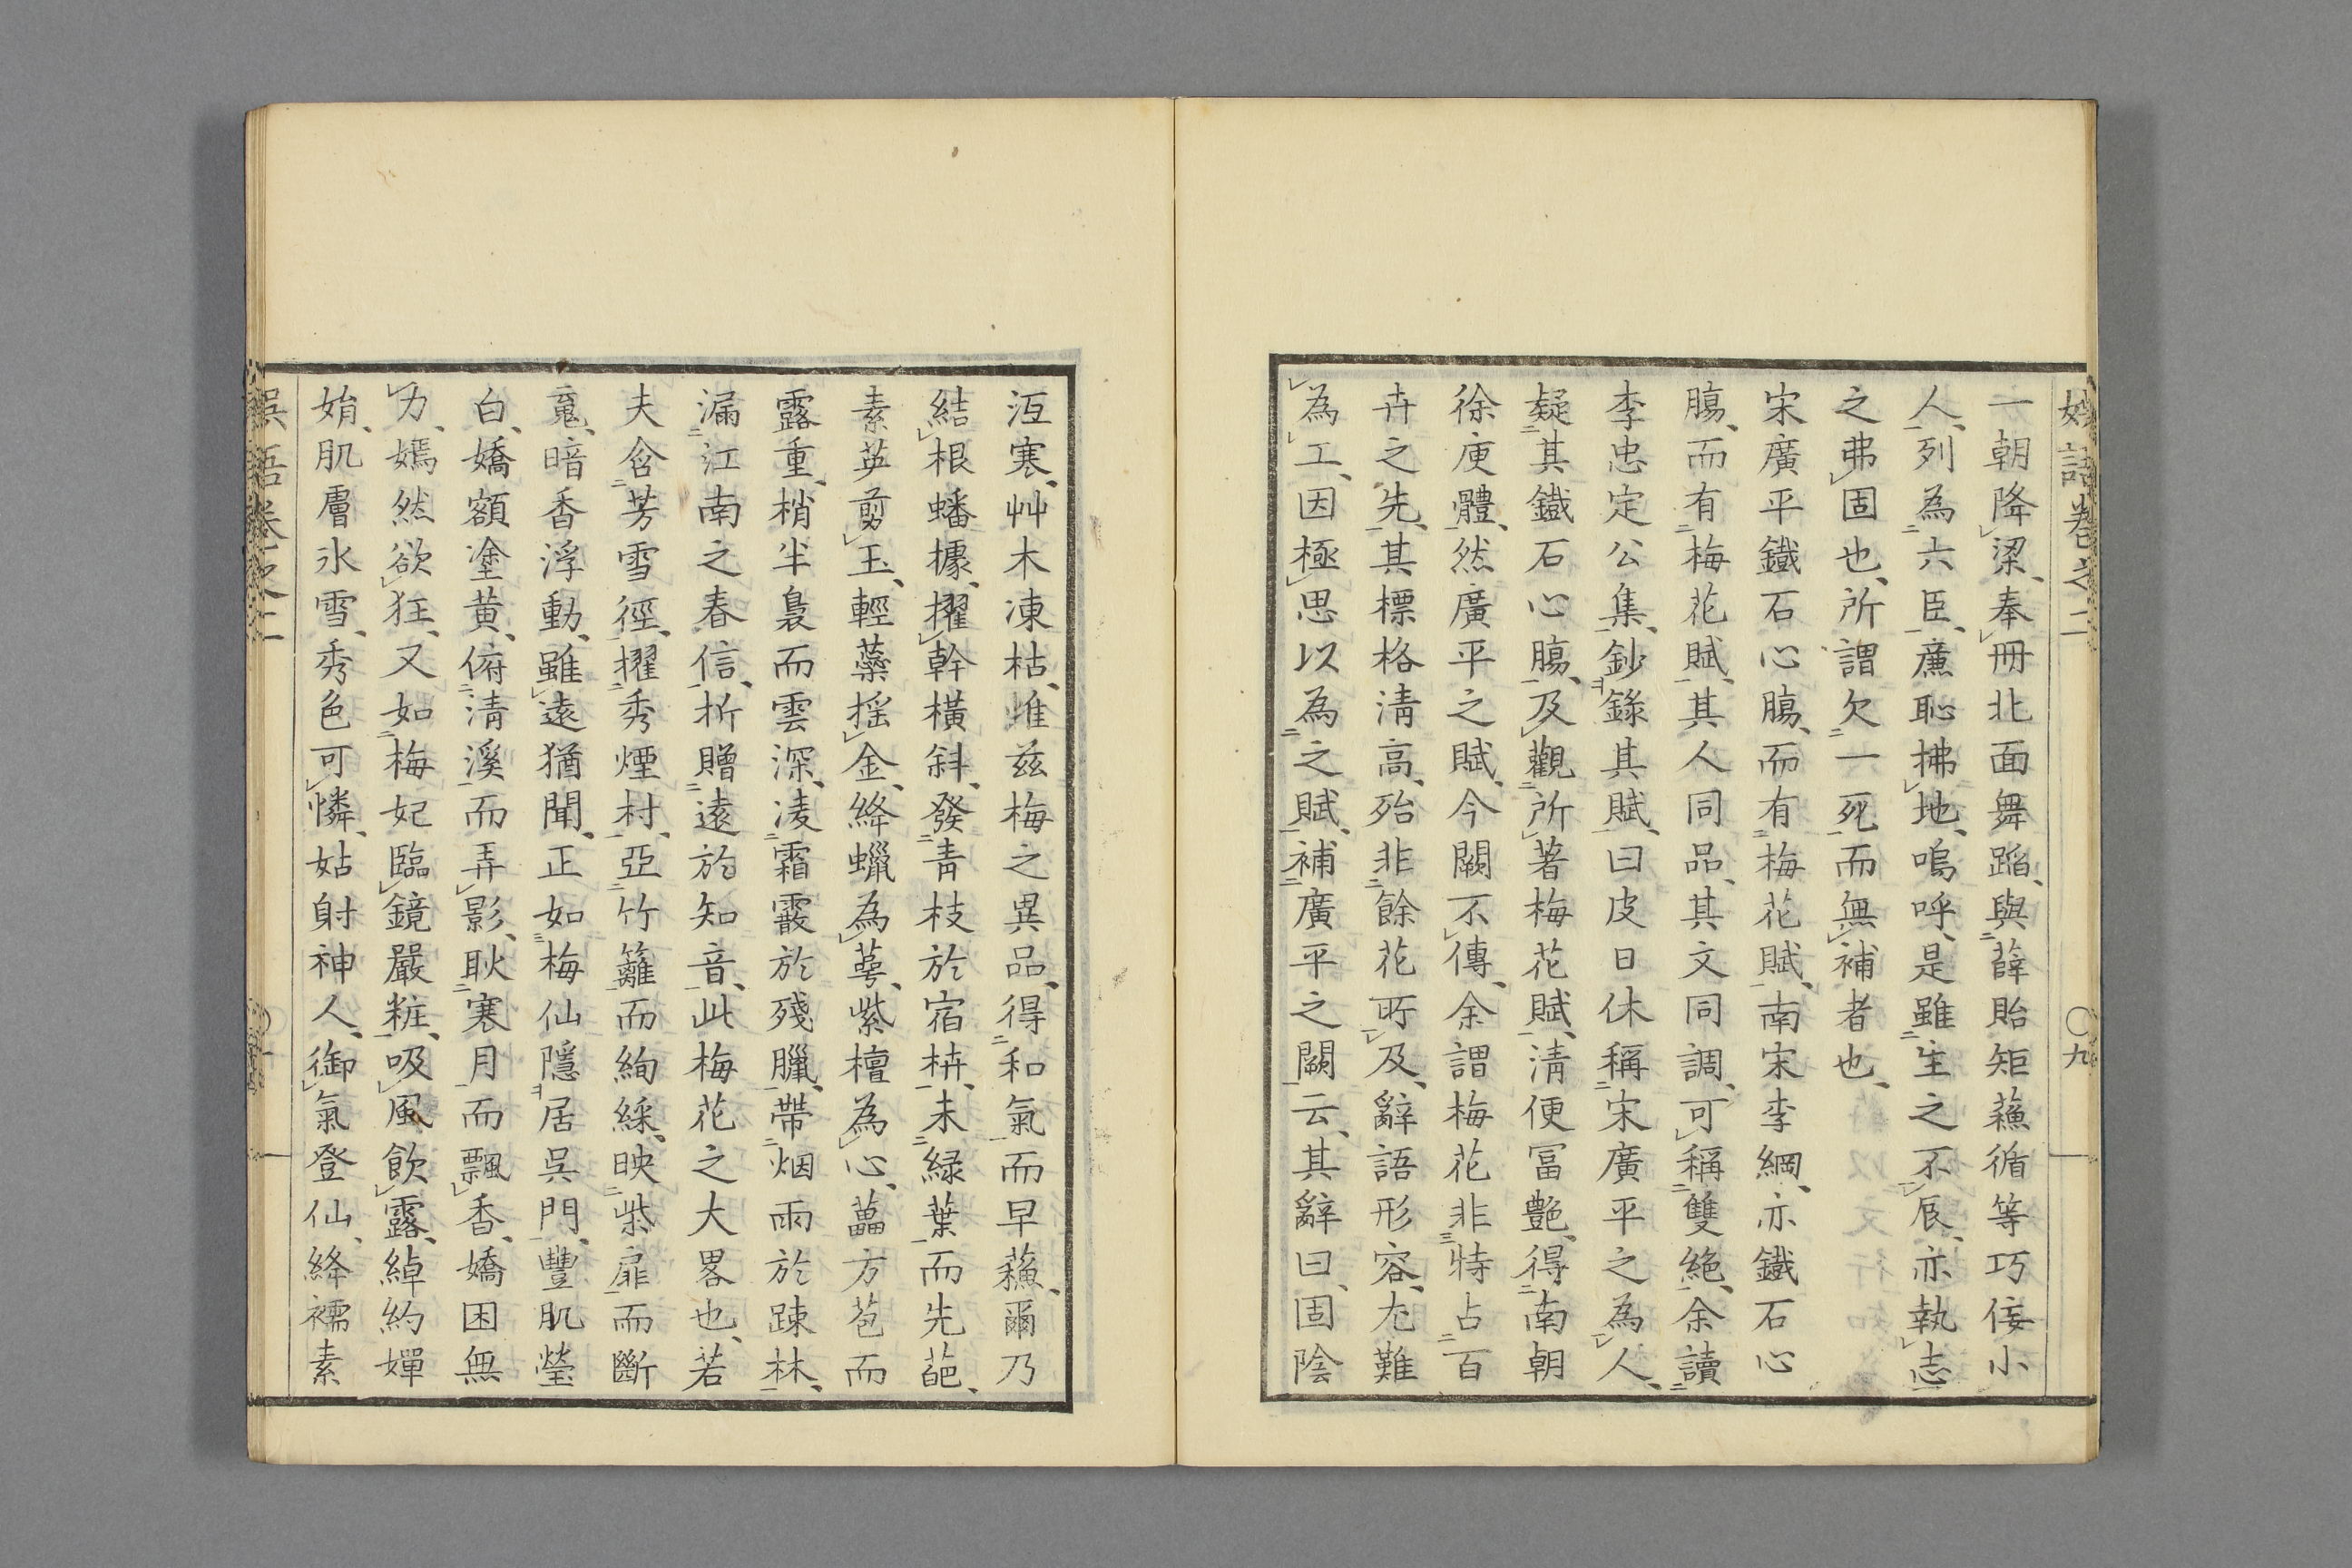 語卷之二 〇九
一朝降梁、奉冊北面舞蹈、與薛貽矩蘓循等巧佞小
人、列為六臣、廉恥拂地、嗚呼、是雖生之不辰、亦執志
之弗固也、所謂欠一死而無補者也、
宋廣平鐵石心腸、而有梅花賦、南宋李綱、亦鐵石心
腸、而有梅花賦、其人同品、其文同調、可稱雙絶、余讀
李忠定公集、鈔錄其賦、曰皮日休稱宋廣平之為人、
疑其鐵石心腸、及觀所著梅花賦、清便冨艷、得南朝
徐庾體、然廣平之賦、今闕不傳、余謂梅花非特占百
卉之先、其標格清高、殆非餘花所及、辭語形容、尤難
為工、因極思以為之賦、補廣平之闕云、其辭曰、固陰
沍寒、艸木凍枯、惟兹梅之異品、得和氣而早蘓、爾乃
結根蟠據、擢幹橫斜、發青枝於宿枿、未緑葉而先葩、
素英剪玉、輕蘂摇金、絳蠟為萼、紫檀為心、藟方苞而
露重、梢半裊而雲深、凌霜霰於殘臘、帶烟雨於踈林、
漏江南之春信、折贈遠於知音、此梅花之大畧也、若
夫含芳雪徑、擢秀煙村、亞竹籬而絢綵、映柴扉而斷
䰟、暗香浮動、雖遠猶聞、正如梅仙隱居呉門、豐肌瑩
白、嬌額塗黄、俯清溪而弄影、耿寒月而飄香、嬌困無
力、嫣然欲狂、又如梅妃臨鏡嚴粧、吸風飲露、綽約嬋
娟、肌膚氷雪、秀色可憐、姑射神人、御氣登仙、絳襦素
語卷之二